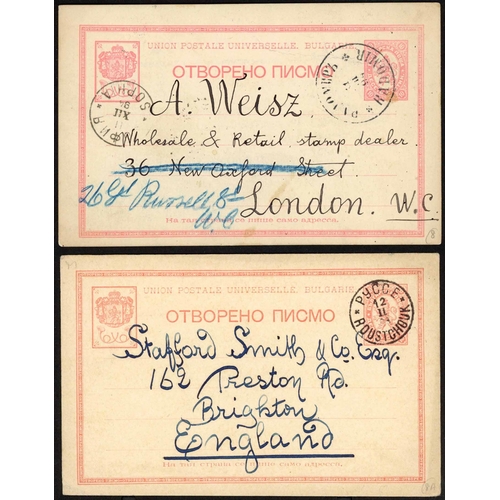 UNION POSTALE UNIVERSELLE, BULGARIE
ОТВОРЕНО ПИСМО
A. Weisz
Wholesale & Retail stamp dealer
36 New Oxford Street.
26 Gt Russell St
W.C
London. W.C.
На тая страна се пише само адресса.
СОФИЯ
XII
UNION POSTALE UNIVERSELLE, BULGARIE
ОТВОРЕНО ПИСМО
РУССЕ
12
II
ROUSTCHOUK
Stafford Smith & Co. Esq.
162 Preston Rd.
Brighton
England
На тая страна се пише само адресса.